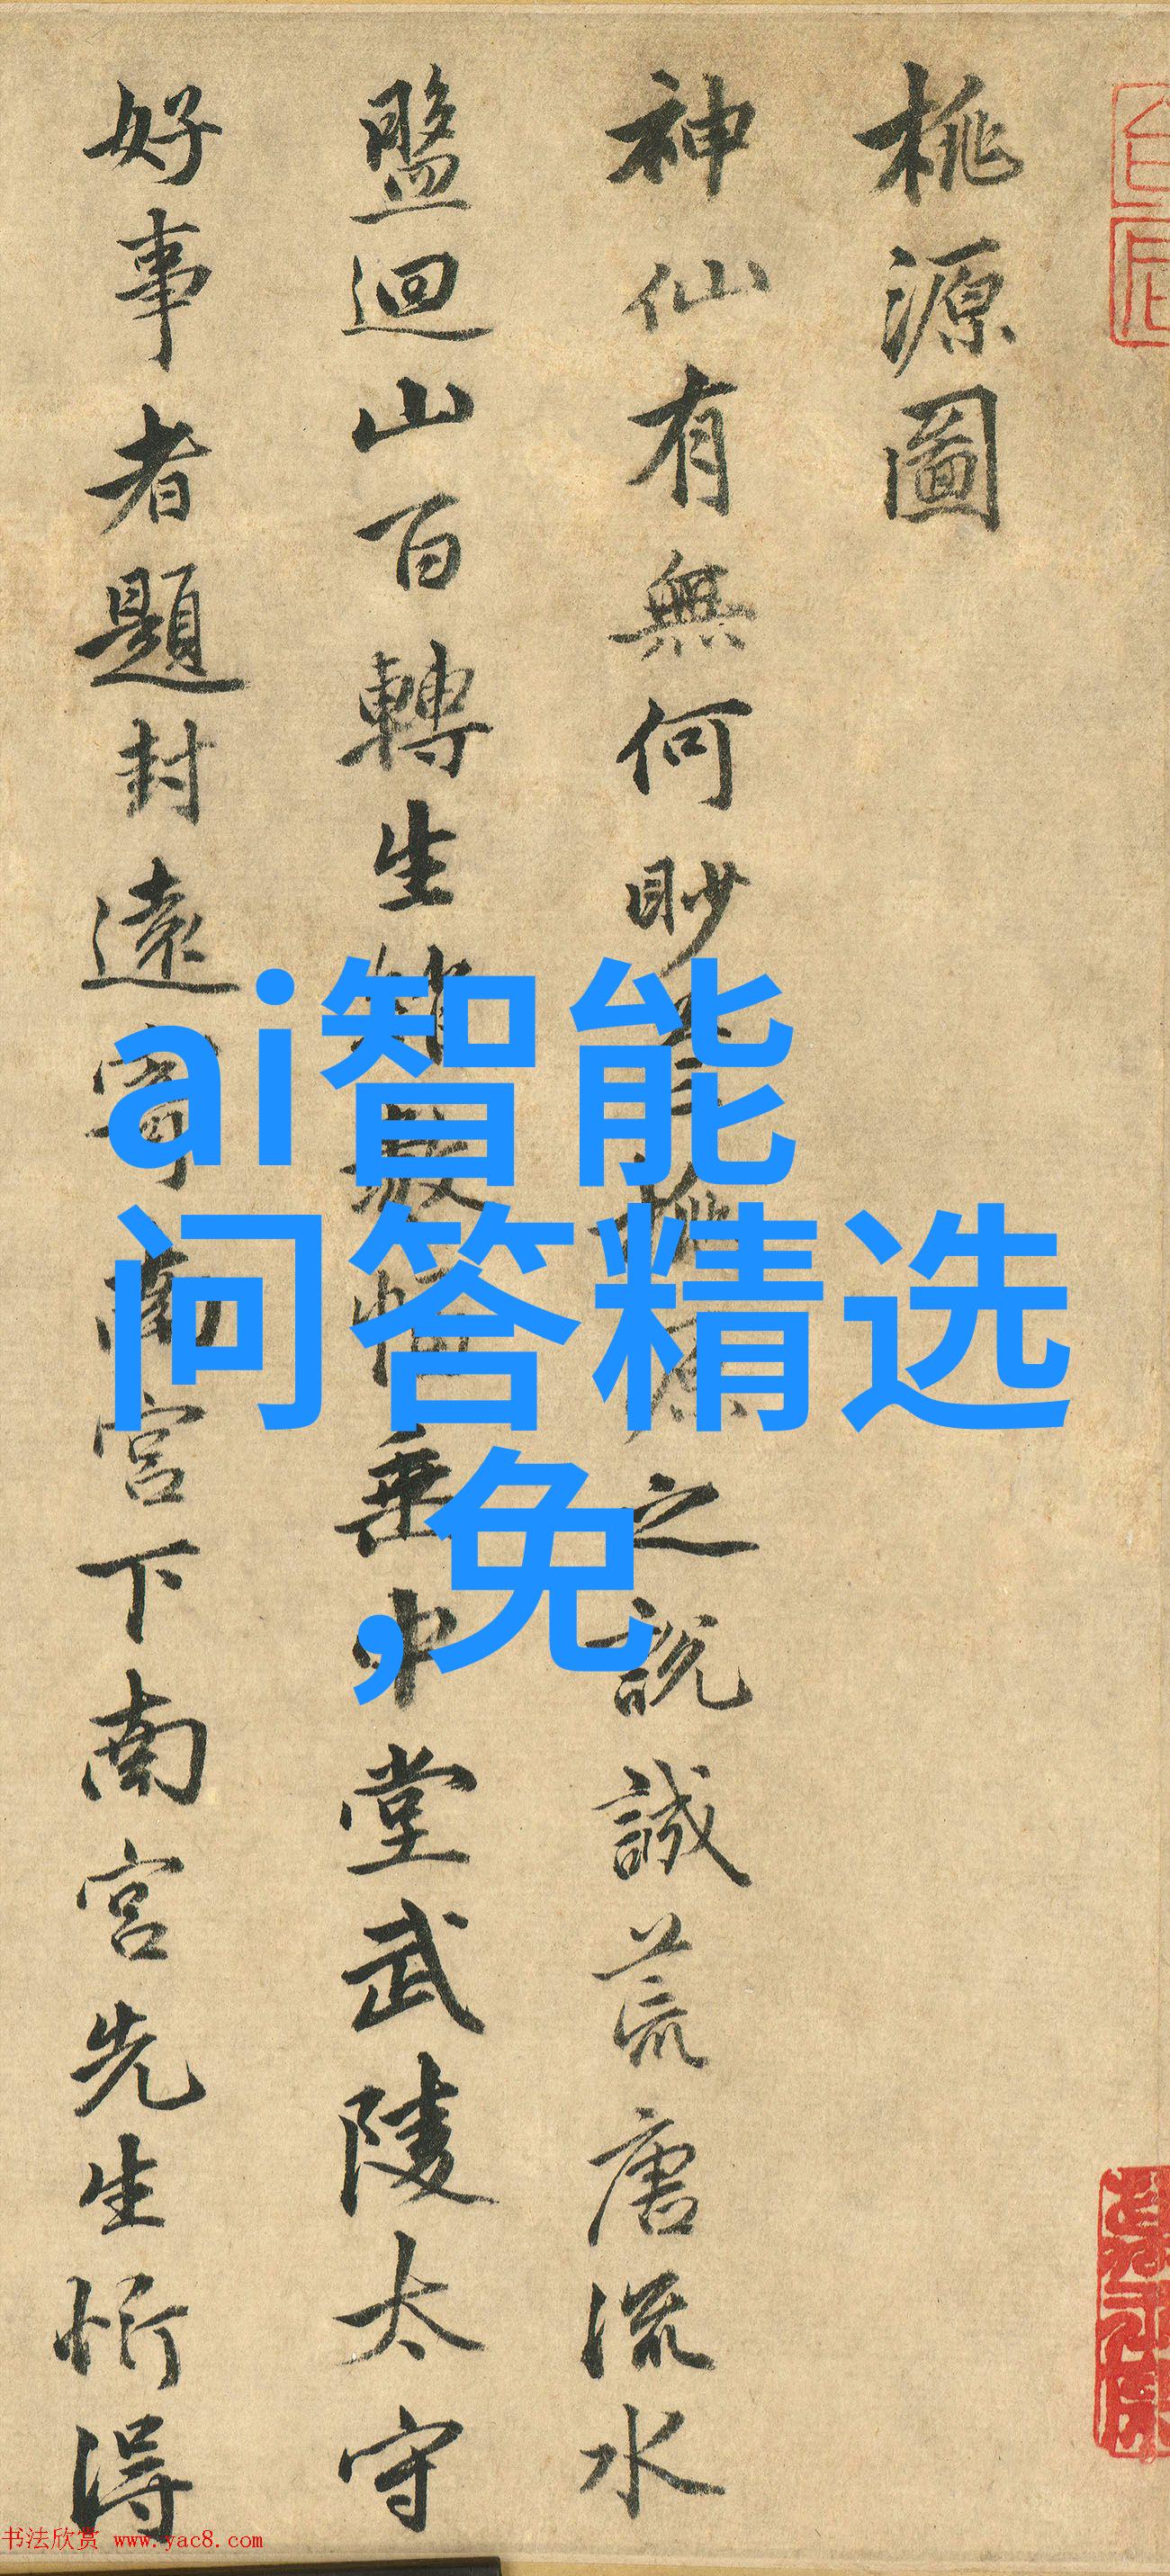 桃源圖
神仙有無何眇芒桃源之說誠荒唐流水
盤迴山百轉生綃數幅垂中堂武陵太守
好事者題封遠寄南宮下南宮先生忻得
ai智能
问答精选
,免
书法欣赏 www.yac8.com